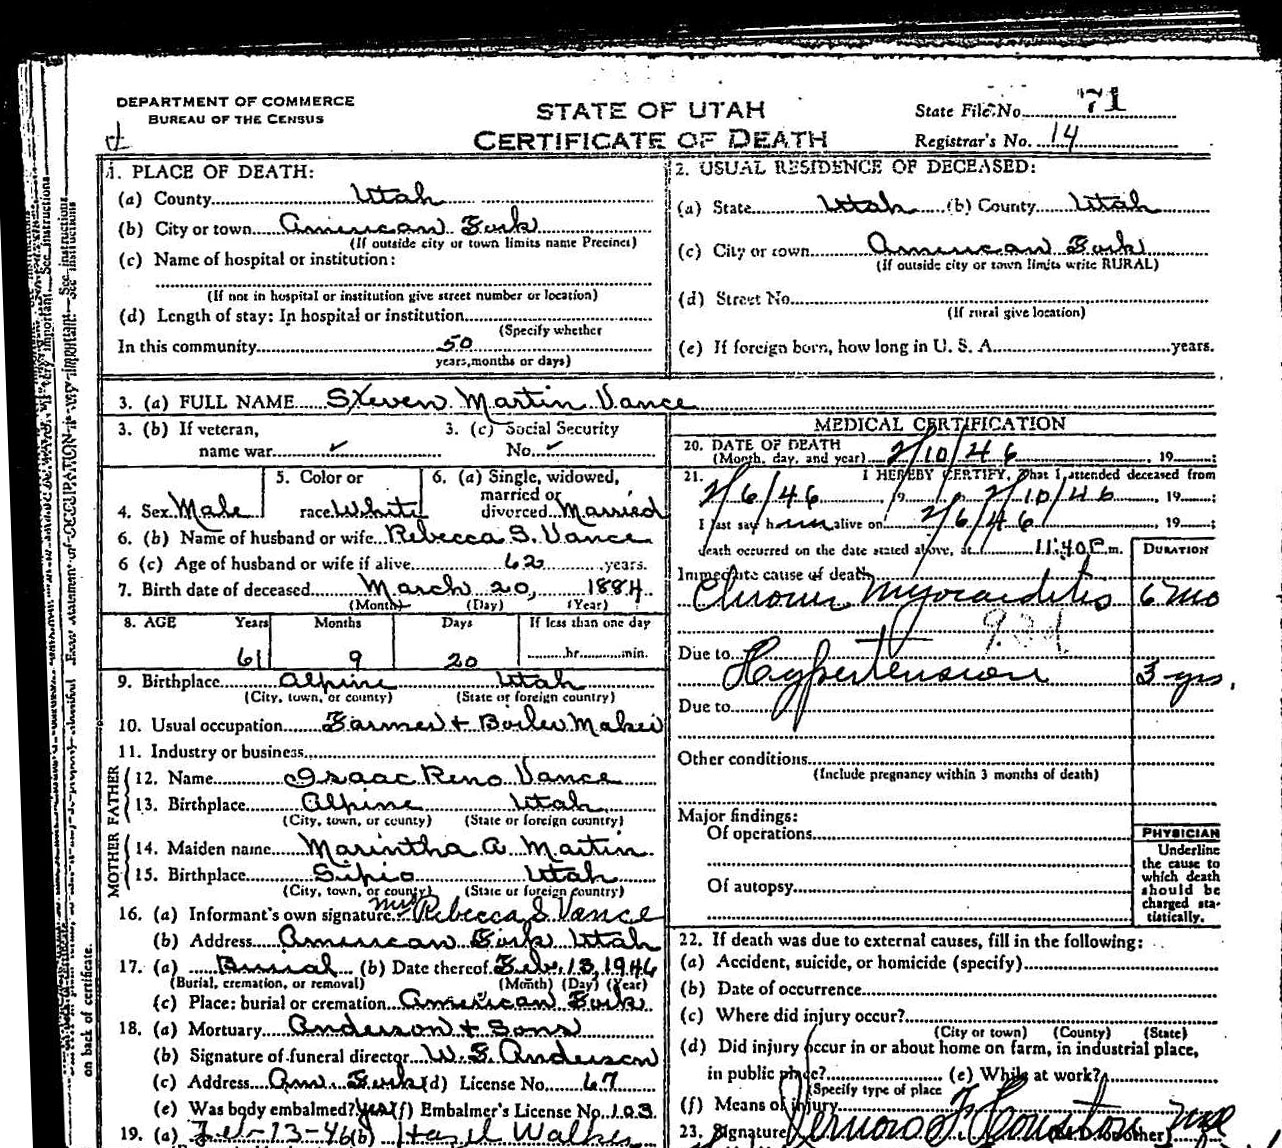 DEPARTMENT OF COMMERCE
BUREAU OF THE CENSUS
STATE OF UTAH
CERTIFICATE OF DEATH
State File No. 71
Registrar's No. 14
1. PLACE OF DEATH:
(a) County Utah
(b) City or town American Fork
(If outside city or town limits name Precinct)
(c) Name of hospital or institution:
(If not in hospital or institution give street number or location)
(d) Length of stay: In hospital or institution
(Specify whether
In this community 50
years, months or days)
2. USUAL RESIDENCE OF DECEASED:
(a) State Utah (b) County Utah
(c) City or town American Fork
(If outside city or town limits write RURAL)
(d) Street No.
(If rural give location)
(e) If foreign born, how long in U. S. A. years.
3. (a) FULL NAME Steven Martin Vance
3. (b) If veteran,
name war ✓
3. (c) Social Security
No. ✓
4. Sex Male
5. Color or
race White
6. (a) Single, widowed,
married or
divorced Married
6. (b) Name of husband or wife Rebecca S. Vance
6 (c) Age of husband or wife if alive 62 years.
7. Birth date of deceased March 20, 1884
(Month) (Day) (Year)
8. AGE Years Months Days If less than one day
61 9 20 hr. min.
9. Birthplace Alpine Utah
(City, town, or county) (State or foreign country)
10. Usual occupation Farmer + Boiler Maker
11. Industry or business
FATHER
12. Name Isaac Reno Vance
13. Birthplace Alpine Utah
(City, town, or county) (State or foreign country)
MOTHER
14. Maiden name Marintha A Martin
15. Birthplace Sipio Utah
(City, town, or county) (State or foreign country)
16. (a) Informant's own signature Mrs Rebecca S Vance
(b) Address American Fork Utah
17. (a) Burial (b) Date thereof Feb. 13, 1946
(Burial, cremation, or removal) (Month) (Day) (Year)
(c) Place: burial or cremation American Fork
18. (a) Mortuary Anderson + Sons
(b) Signature of funeral director W. E. Anderson
(c) Address Am. Fork (d) License No. 67
(e) Was body embalmed? Yes (f) Embalmer's License No. 103
19. (a) Feb-13-46 (b) Hazel Walker
MEDICAL CERTIFICATION
20. DATE OF DEATH
(Month, day, and year) 2/10/46, 19 ;
21. I HEREBY CERTIFY, That I attended deceased from
2/6/46, 19 2/10/46, 19 ;
I last saw him alive on 2/6/46, 19 ;
death occurred on the date stated above, at 11:40 P. m.
DURATION
Immediate cause of death
Chronic Myocarditis 6 mo
Due to
Hypertension 3 yrs.
Due to
Other conditions
(Include pregnancy within 3 months of death)
Major findings:
Of operations
Of autopsy
PHYSICIAN
Underline
the cause to
which death
should be
charged sta-
tistically.
22. If death was due to external causes, fill in the following:
(a) Accident, suicide, or homicide (specify)
(b) Date of occurrence
(c) Where did injury occur?
(City or town) (County) (State)
(d) Did injury occur in or about home on farm, in industrial place,
in public place? (e) While at work?
(Specify type of place
(f) Means of injury
23. Signature Vernon F. Houston
on back of certificate.